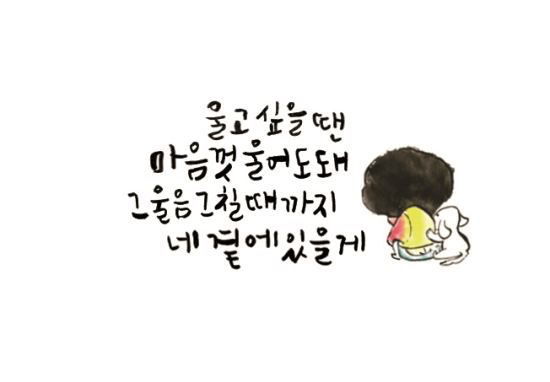 울고 싶을 땐
마음껏 울어도돼
그 울음 그칠 때까지
네 곁에 있을게